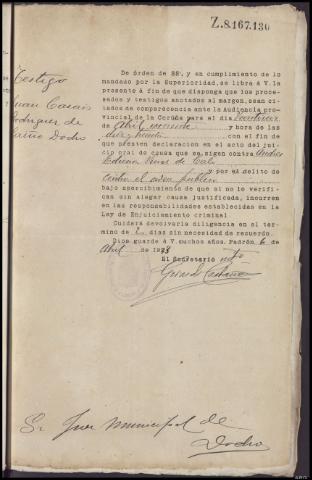 Z.8.167.130
Testigo
Juan
Rodriguez de
Dodro
De órden de SSª, y en cumplimiento de lo
mandado por la Superioridad, se libra á V. la
presente á fin de que disponga que los proce
sados y testigos anotados al margen, sean ci-
tados de comparecencia ante la Audiencia pro-
vincial de la Coruña para el dia
de Abril y hora de las
diez con el fin de
que presten declaracion en el acto del jui-
cio oral de causa que se sigue contra Andres
de y por el delito de
contra el orden publico
bajo apercibimiento de que si no lo verifi-
can sin alegar causa justificada, incurren
en las responsabilidades establecidas en la
Ley de Enjuiciamiento criminal
Cuidará devolverla diligencia en el ter-
mino de 2 dias sin necesidad de recuerdo.
Dios guarde á V. muchos años. Padrón 6 de
Abril de
El Secretario
Sr. Juez Municipal de
Dodro